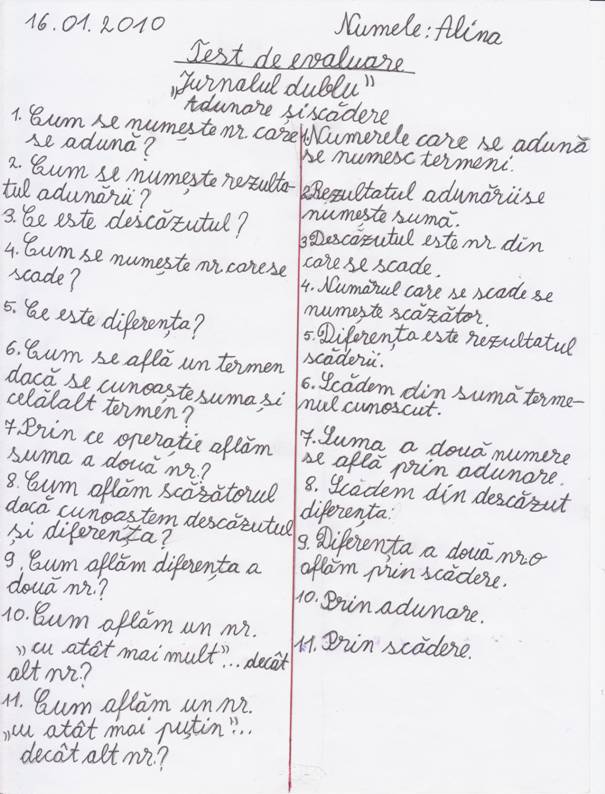 16.01.2010
Numele: Alina
Test de evaluare
„Jurnalul dublu”
Adunare și scădere
1. Cum se numește nr. care
se adună?
2. Cum se numește rezulta-
tul adunării?
3. Ce este descăzutul?
4. Cum se numește nr. care se
scade?
5. Ce este diferența?
6. Cum se află un termen
dacă se cunoaște suma și
celălalt termen?
7. Prin ce operație aflăm
suma a două nr.?
8. Cum aflăm scăzătorul
dacă cunoaștem descăzutul
și diferența?
9. Cum aflăm diferența a
două nr.?
10. Cum aflăm un nr.
„cu atât mai mult”... decât
alt nr.?
11. Cum aflăm un nr.
„cu atât mai puțin”...
decât alt nr.?
1. Numerele care se adună
se numesc termeni.
2. Rezultatul adunării se
numește sumă.
3. Descăzutul este nr. din
care se scade.
4. Numărul care se scade se
numește scăzător.
5. Diferența este rezultatul
scăderii.
6. Scădem din sumă terme-
nul cunoscut.
7. Suma a două numere
se află prin adunare.
8. Scădem din descăzut
diferența.
9. Diferența a două nr. o
aflăm prin scădere.
10. Prin adunare.
11. Prin scădere.